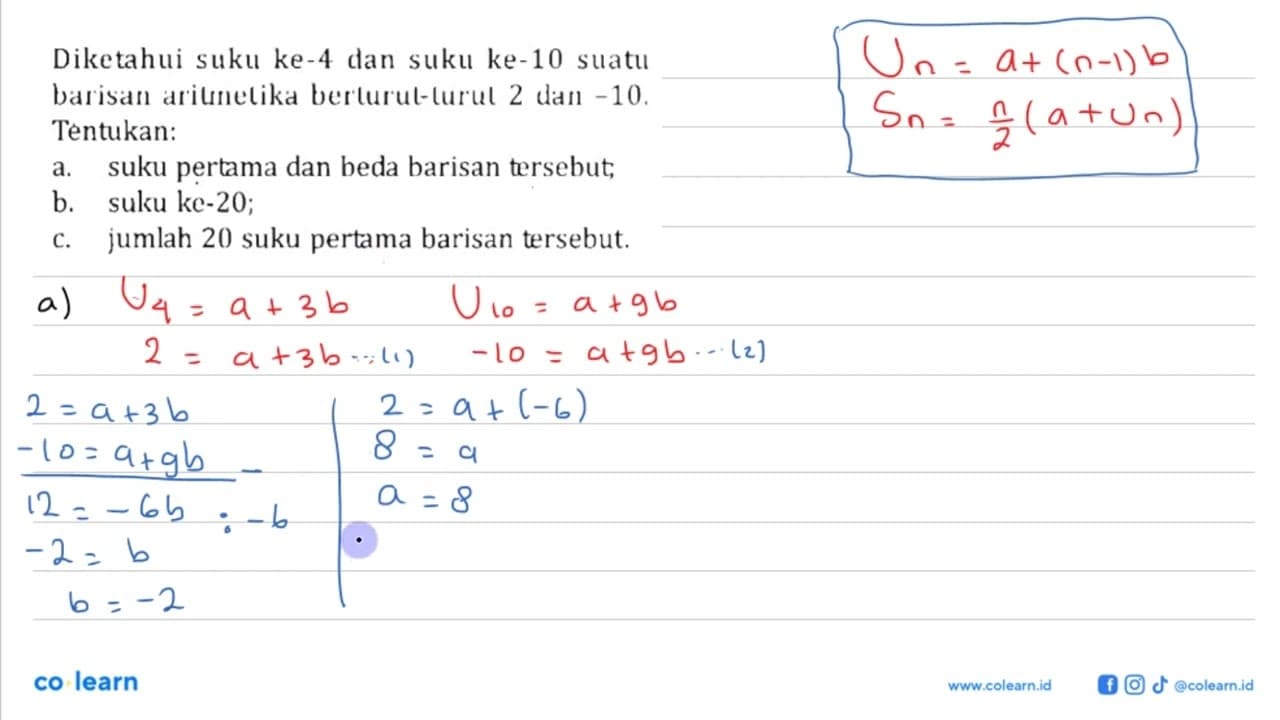 Diketahui suku ke-4 dan suku ke-10 suatu
barisan aritmetika berturut-turut 2 dan -10.
Tentukan:
a. suku pertama dan beda barisan tersebut;
b. suku ke-20;
c. jumlah 20 suku pertama barisan tersebut.
Un = a+(n-1)b
Sn = n/2 (a+Un)
a) U4 = a + 3b
2 = a+3b ...(1)
U10 = a+9b
-10 = a+9b ...(2)
2 = a+3b
-10 = a+9b -
12 = -6b : -6
-2 = b
b = -2
2 = a+(-6)
8 = a
a = 8
co learn
www.colearn.id
@colearn.id